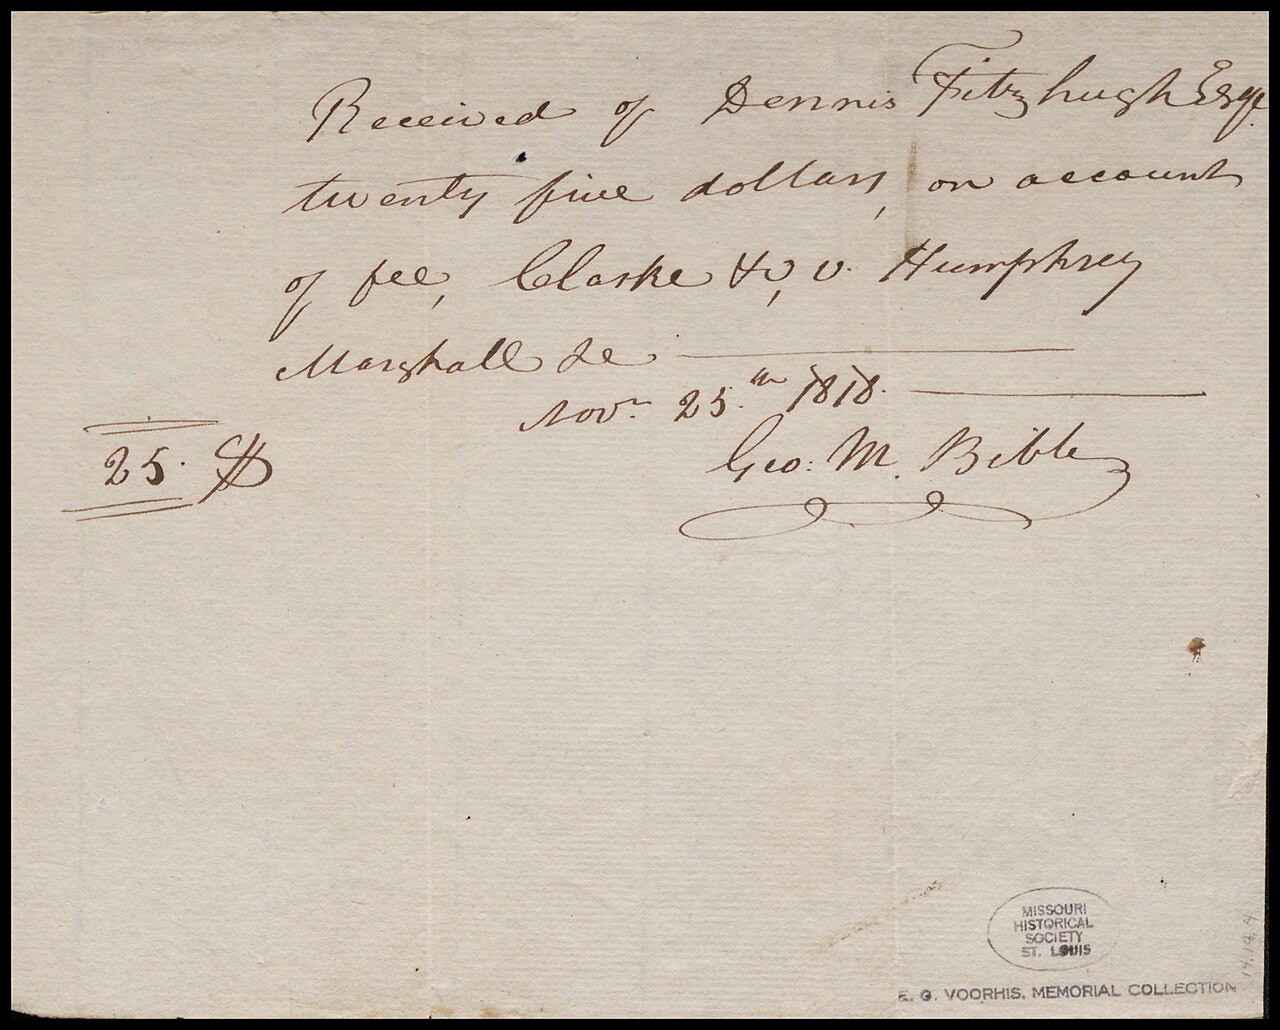 Received of Dennis Fitzhugh Esqr.
twenty five dollars, on account
of fee, Clarke &c, v. Humphrey
Marshall &c.
Novr. 25.th 1818.
25. $
Geo: M. Bibb
MISSOURI
HISTORICAL
SOCIETY
ST. LOUIS
E. G. VOORHIS, MEMORIAL COLLECTION